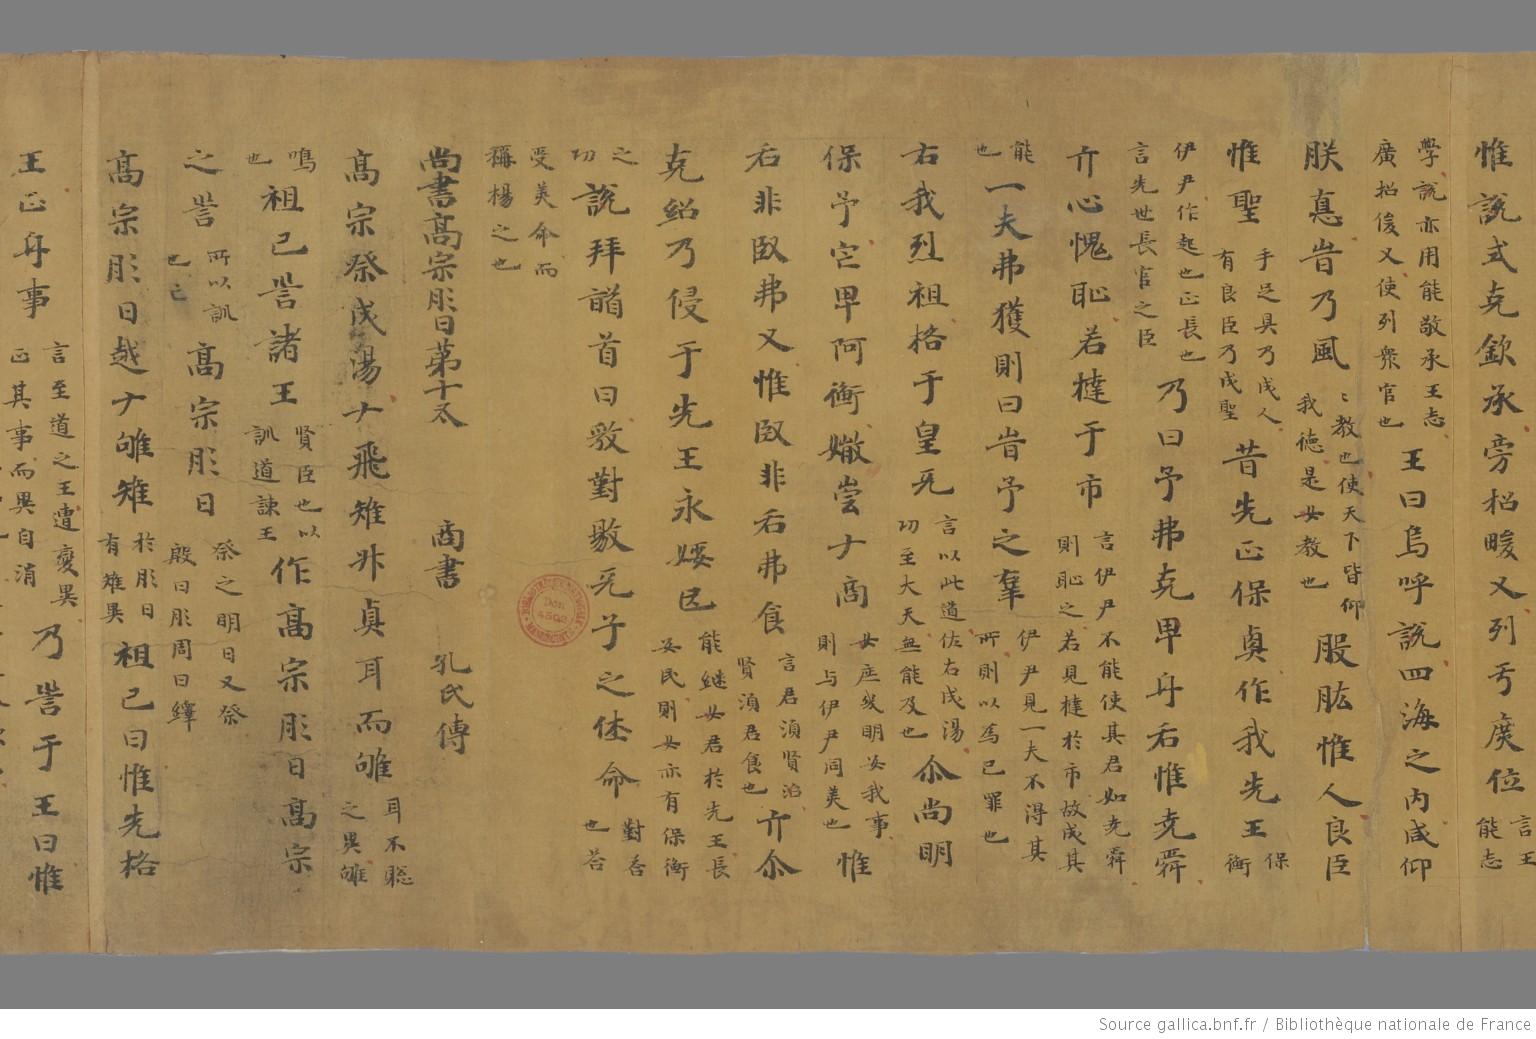 惟説式克欽承旁招畯乂列于庶位言王能志
學説亦用能敬承王志廣招俊乂使列衆官也王曰烏呼説四海之内咸仰
朕悳旹乃風〻教也使天下皆仰我德是女教也股肱惟人良臣
惟聖手足具乃成人有良臣乃成聖昔先正保奧作我先王保衡
伊尹作起也正長也言先世長官之臣乃曰予弗克卑身后惟尭舜
亓心愧恥若撻于市言伊尹不能使其君如尭舜則恥之若見撻於市故成其
能也一夫弗獲則曰旹予之辜伊尹見一夫不得其所則以為己罪也
右我烈祖格于皇兲言以此道佐右成湯功至大天無能及也尒尚明
保予它卑阿衡媺尝ナ商女庶幾明安我事則与伊尹同美也惟
后非臤弗乂惟臤非后弗食言君湏賢治賢湏君食也亓尒
克紹乃侵于先王永媛民能継女君於先王長安民則女亦有保衡
之功説拜䭫首曰敢對敭兲子之休命對荅也荅
受美命而稱楊之也
尚書高宗肜日第十五 商書 孔氏傳
高宗祭成湯ナ飛雉升鼎耳而雊耳不聡之異雊
鳴也祖己訔諸王賢臣也以訓道諫王作高宗肜日高宗
之訔所以訓也亡高宗肜日祭之明日又祭殷曰肜周曰繹
高宗肜日越ナ雊雉於肜日有雉異祖己曰惟先格
王正身事言至道之王遭變異正其事而異自消乃訔于王曰惟
Source gallica.bnf.fr / Bibliothèque nationale de France